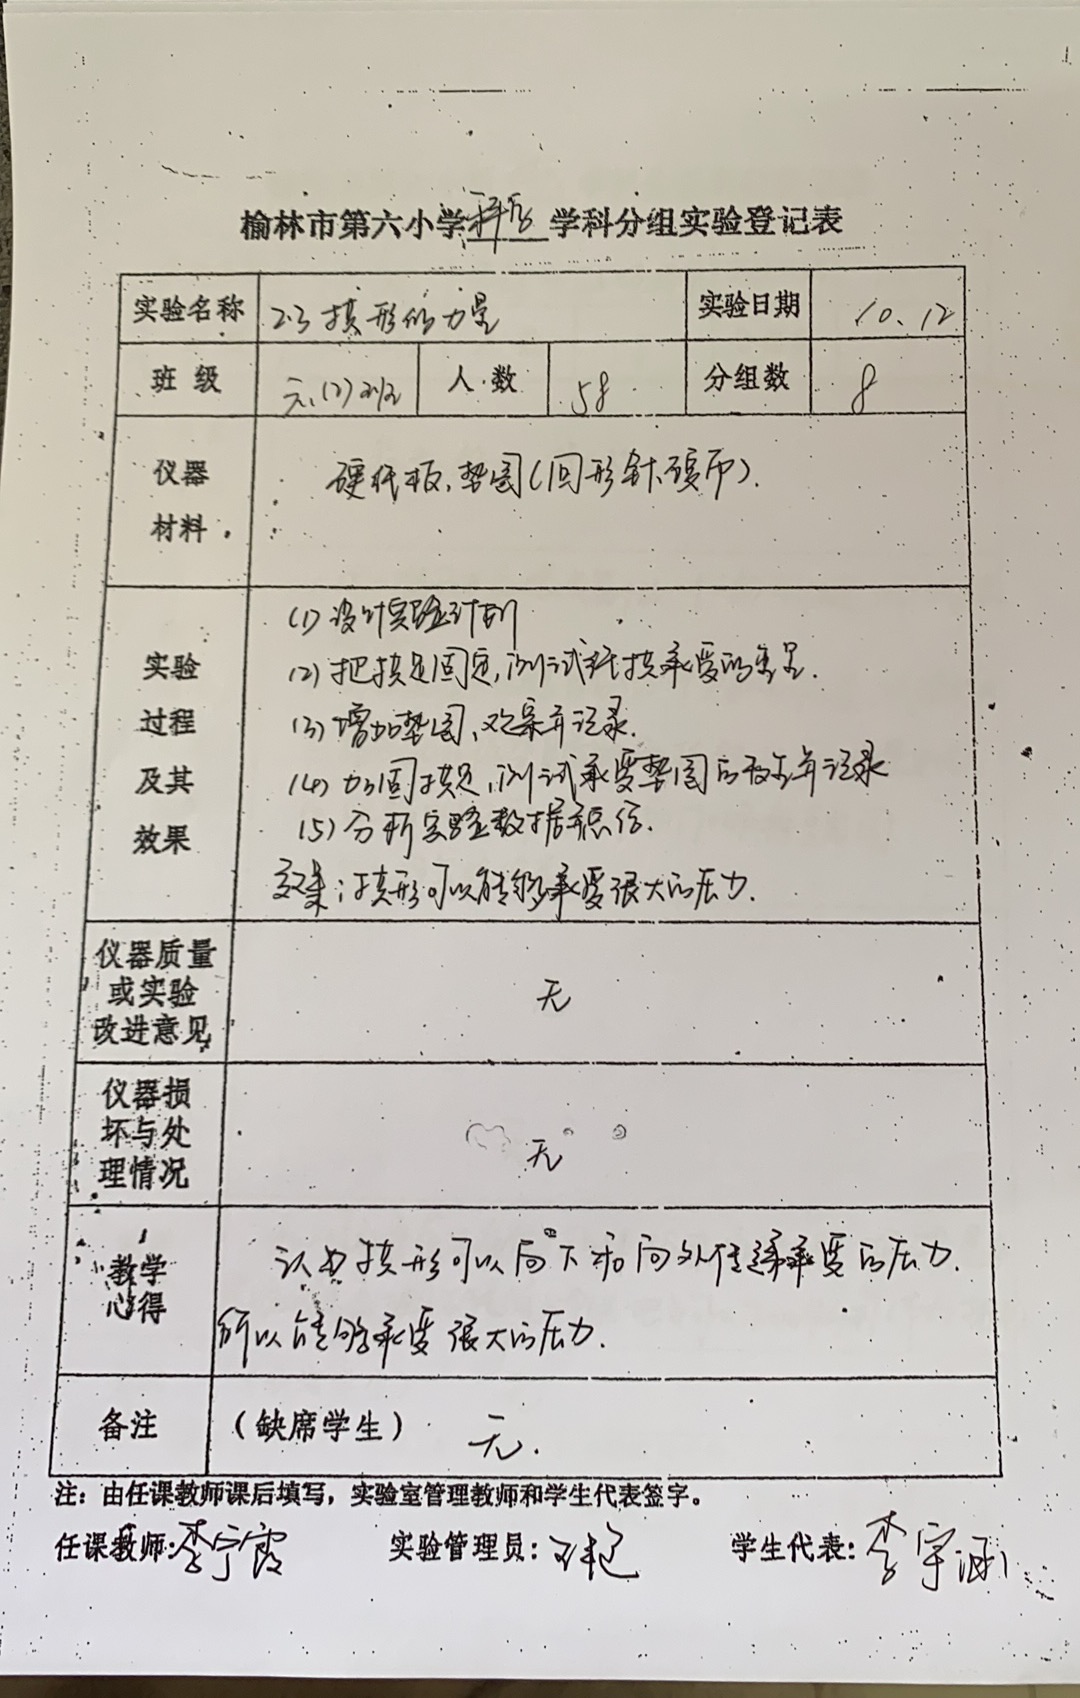 榆林市第六小学科学学科分组实验登记表
实验名称 2.3拱形的力量 实验日期 10.12
班级 六(2)班 人数 58 分组数 8
仪器材料 硬纸板、垫圈(回形针、硬币).
实验过程及其效果
(1)设计实验计划
(2)把拱足固定,测试纸拱承受的重量.
(3)增加垫圈、观察并记录.
(4)加固拱足,测试承受垫圈的 并记录
(5)分析实验数据
效果:拱形可以能够承受很大的压力.
仪器质量或实验改进意见 无
仪器损坏与处理情况 无
教学心得
认为拱形可以向下和向外传递承受的压力.
所以能够承受很大的压力.
备注 (缺席学生) 无.
注:由任课教师课后填写,实验室管理教师和学生代表签字。
任课教师:李宁霞 实验管理员: 学生代表:李宇涵